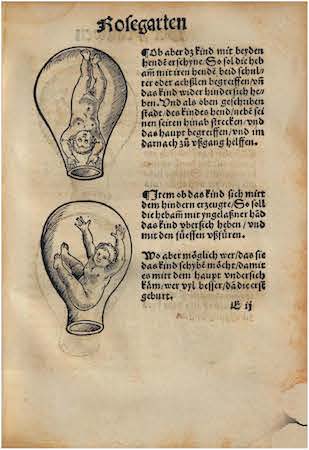 Rosegarten
¶Ob aber dz kind mit beyden
hendē erschyne: So sol die heb
am̄ mit iren hendē beid schul⸗
ter oder achßlen begreiffen/vn̄
das kind wider hindersich he⸗
ben. Vnd als oben geschriben
stadt/des kindes hend/nebē sei
nen seiten hinab strecken/vnd
das haupt begreiffen/vnd im
darnach zů vßgang helffen.
¶Item ob das kind sich mitt
dem hindern erzeugte/So soll
die hebam̄ mit yngelaßner hād
das kind vbersich heben/vnd
mit den füessen vßfüren.
Wo aber möglich wer/das sie
das kind schybē möcht/damit
es mit dem haupt vndersich
käm/wer vyl besser/dā die erst
geburt.
E ij